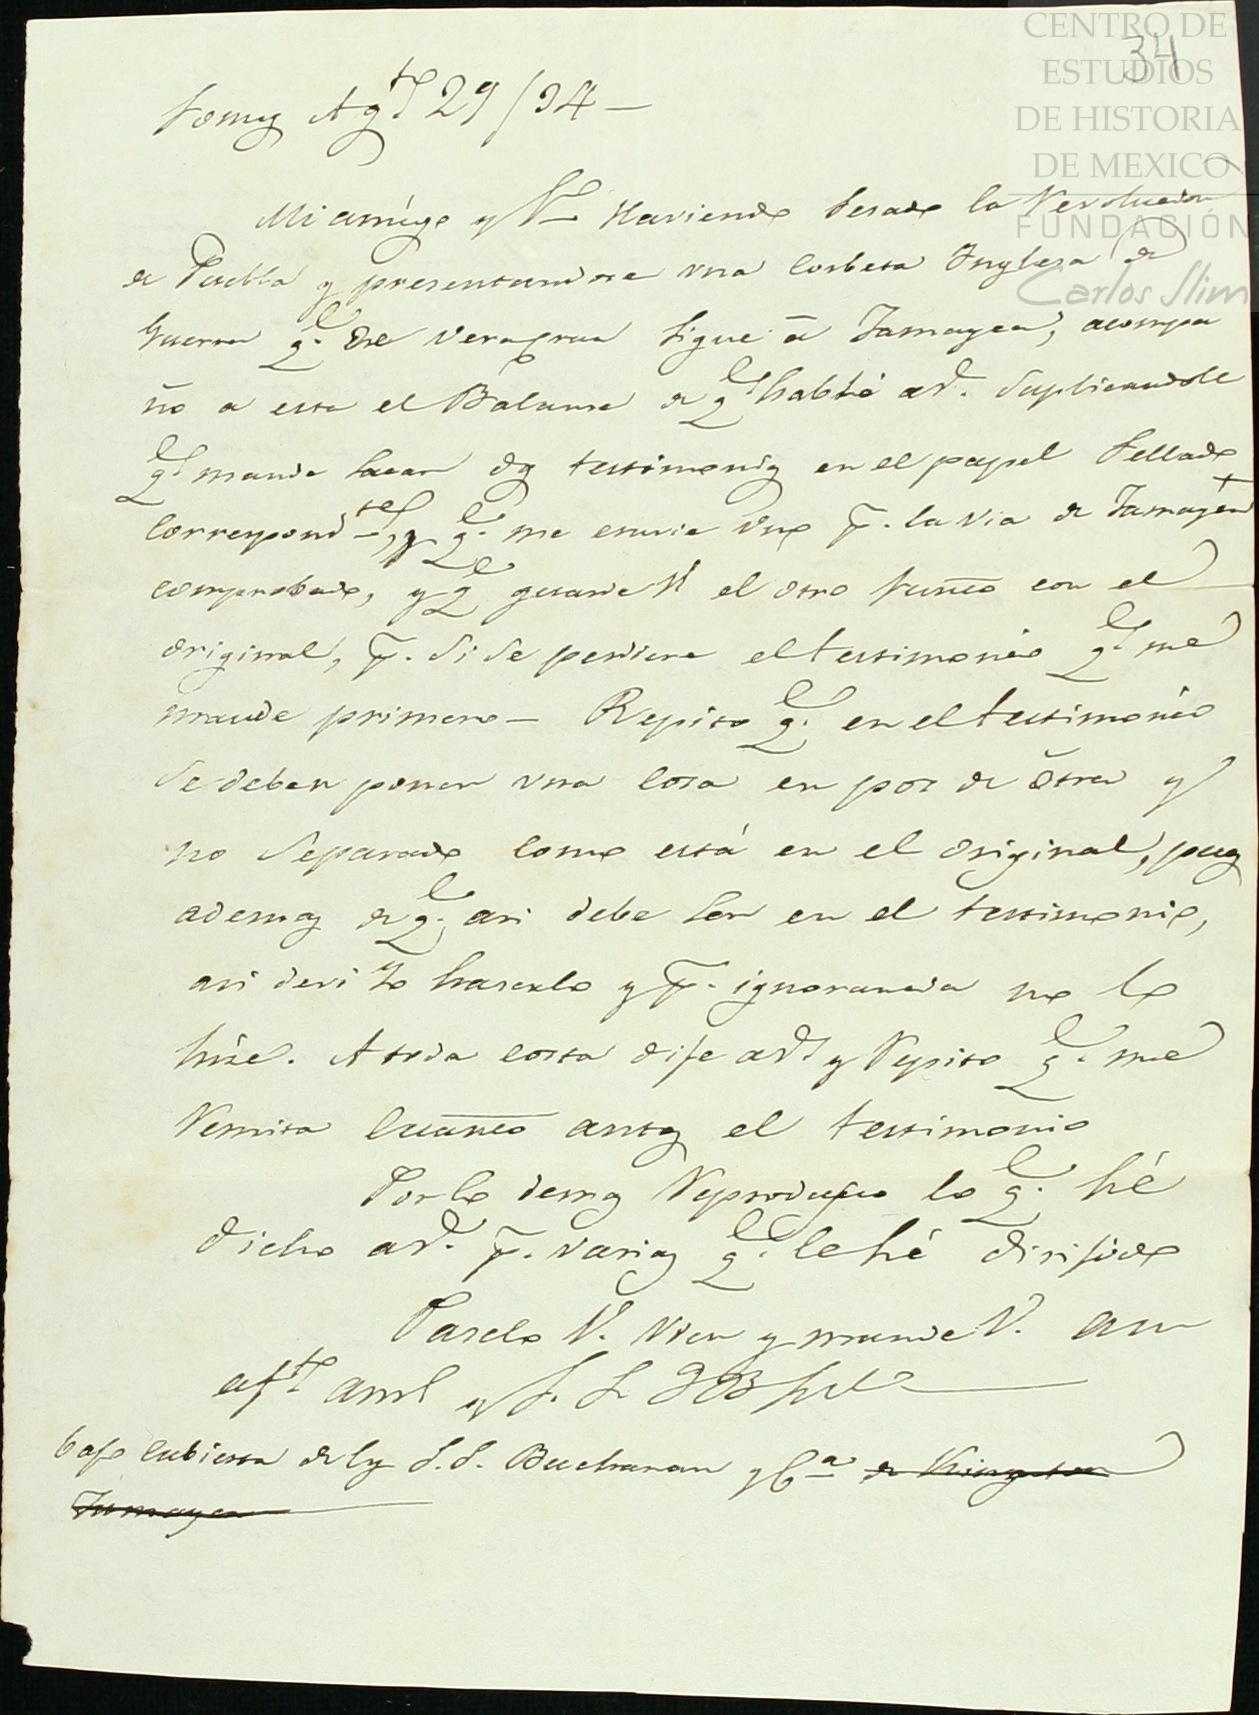 CENTRO DE
ESTUDIOS
DE HISTORIA
DE MEXICO
FUNDACIÓN
Carlos Slim
34
Agto 29/34—
Mi amigo y Sr. Haviendo sesado la Revolucion
de Puebla y presentandose una Corbeta Inglesa de
Guerra q.e de Veracruz sigue á Jamayca, acompa
ño a esta el Balanse de q.e hablé a V. suplicandole
q.e mande sacar dos testimonios en el papel sellado
correspondte, y q.e me envie uno p.r la via de Jamayca +
comprobado, y q.e guarde V. el otro junto con el
original, p.r si se perdiere el testimonio q.e me
mande primero— Repito q.e en el testimonio
se deben poner una cosa en pos de otra y
no separado como está en el original, pues
ademas de q.e asi debe ser en el testimonio,
asi deví yo haserlo y p.r ignorancia no lo
hize. A toda costa dije a V. y repito q.e me
remita cuanto antes el testimonio
Por lo demas reprodusco lo q.e hé
dicho a V. p.r varias q.e le hé dirijido
Paselo V. vien y mande V. a su
afto am.o y S. S. Q B S M
bajo cubierta de los S.S. Buchanan y C.a de Kingston
Jamayca